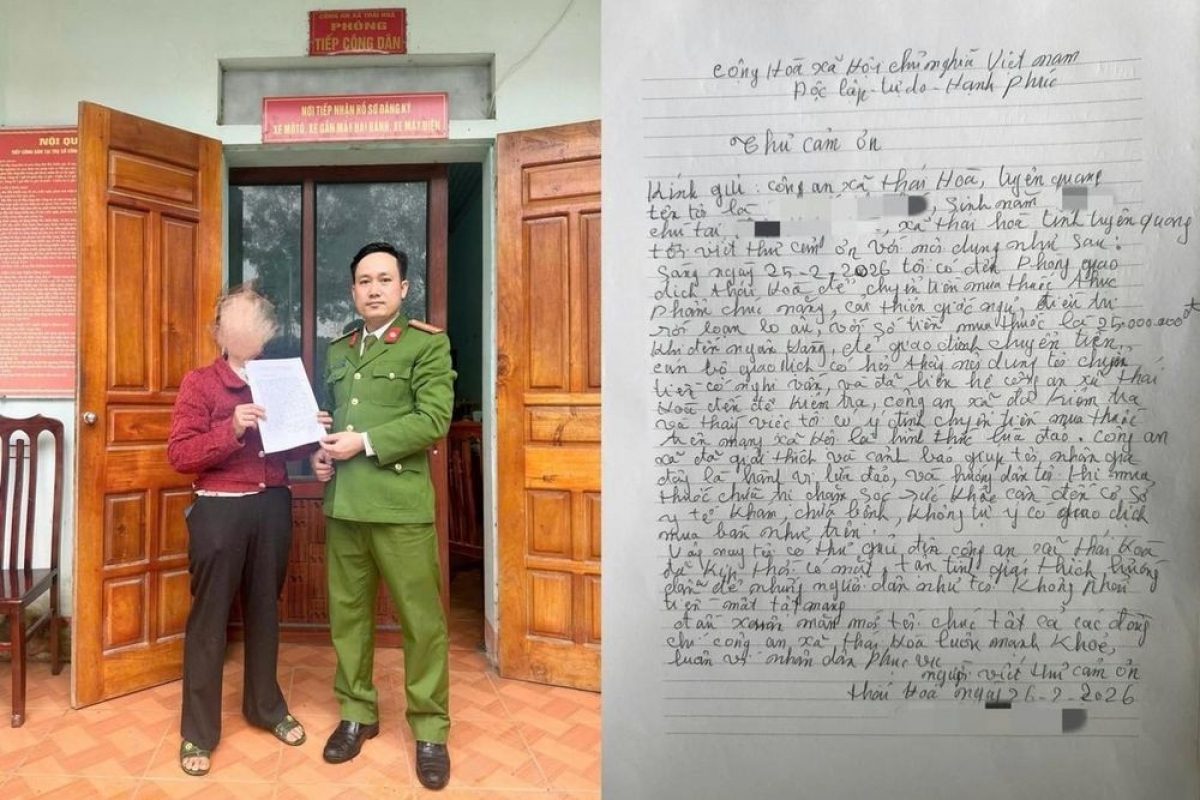 CÔNG AN XÃ THÁI HOÀ
PHÒNG
TIẾP CÔNG DÂN
NƠI TIẾP NHẬN HỒ SƠ ĐĂNG KÝ
XE MÔTÔ, XE GẮN MÁY HAI BÁNH, XE MÁY ĐIỆN
NỘI QU
Cộng Hoà xã Hội chủ nghĩa Việt nam
Độc lập - tự do - Hạnh Phúc
Thư cảm ơn
Kính gửi: công an xã thái Hoà, tuyên quang
tên tôi là , Sinh năm
chú tại , xã thái hoà tỉnh tuyên quang
tôi viết thư cảm ơn với nội dung như sau:
Sáng ngày 25-2-2026 tôi có đến Phòng giao
dịch thái Hoà để chuyển tiền mua thuốc thực
phẩm chức năng, cải thiện giấc ngủ, điều trị
rối loạn lo âu, với số tiền mua thuốc là 25.000.000đ
Khi đến ngân hàng, để giao dịch chuyển tiền,
cán bộ giao dịch có hỏi thấy nội dung tôi chuyển
tiền có nghi vấn, và đã liên hệ công an xã thái
Hoà đến để kiểm tra, công an xã đã kiểm tra
và thấy việc tôi có ý định chuyển tiền mua thuốc
trên mạng xã hội là hình thức lừa đảo. công an
xã đã giải thích và cảnh báo giúp tôi, nhận
đây là hành vi lừa đảo, và hướng dẫn tôi khi mua
thuốc chữa trị chăm sóc sức khỏe cần đến cơ sở
y tế khám, chữa bệnh, không tự ý có giao dịch
mua bán như trên.
Vậy nay tôi có thư gửi đến công an xã thái Hoà
đã kịp thời có mặt, tận tình giải thích hướng
dẫn để những người dân như tôi không phải
tiền mất tật mang
xuân mới tôi chúc tất cả các đồng
chí công an xã thái Hoà luôn mạnh khoẻ,
luôn vì nhân dân phục vụ
người viết thư cảm ơn
thái Hoà ngày 26-2-2026